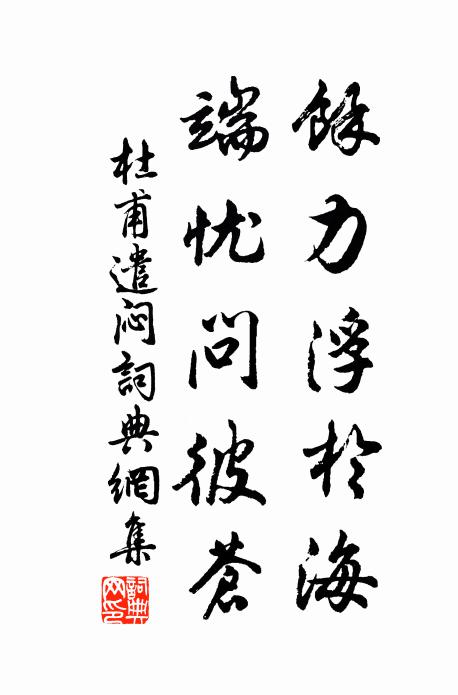 餘力浮於海
端忧問彼蒼
杜甫遣闷詞典網集
詞典网印